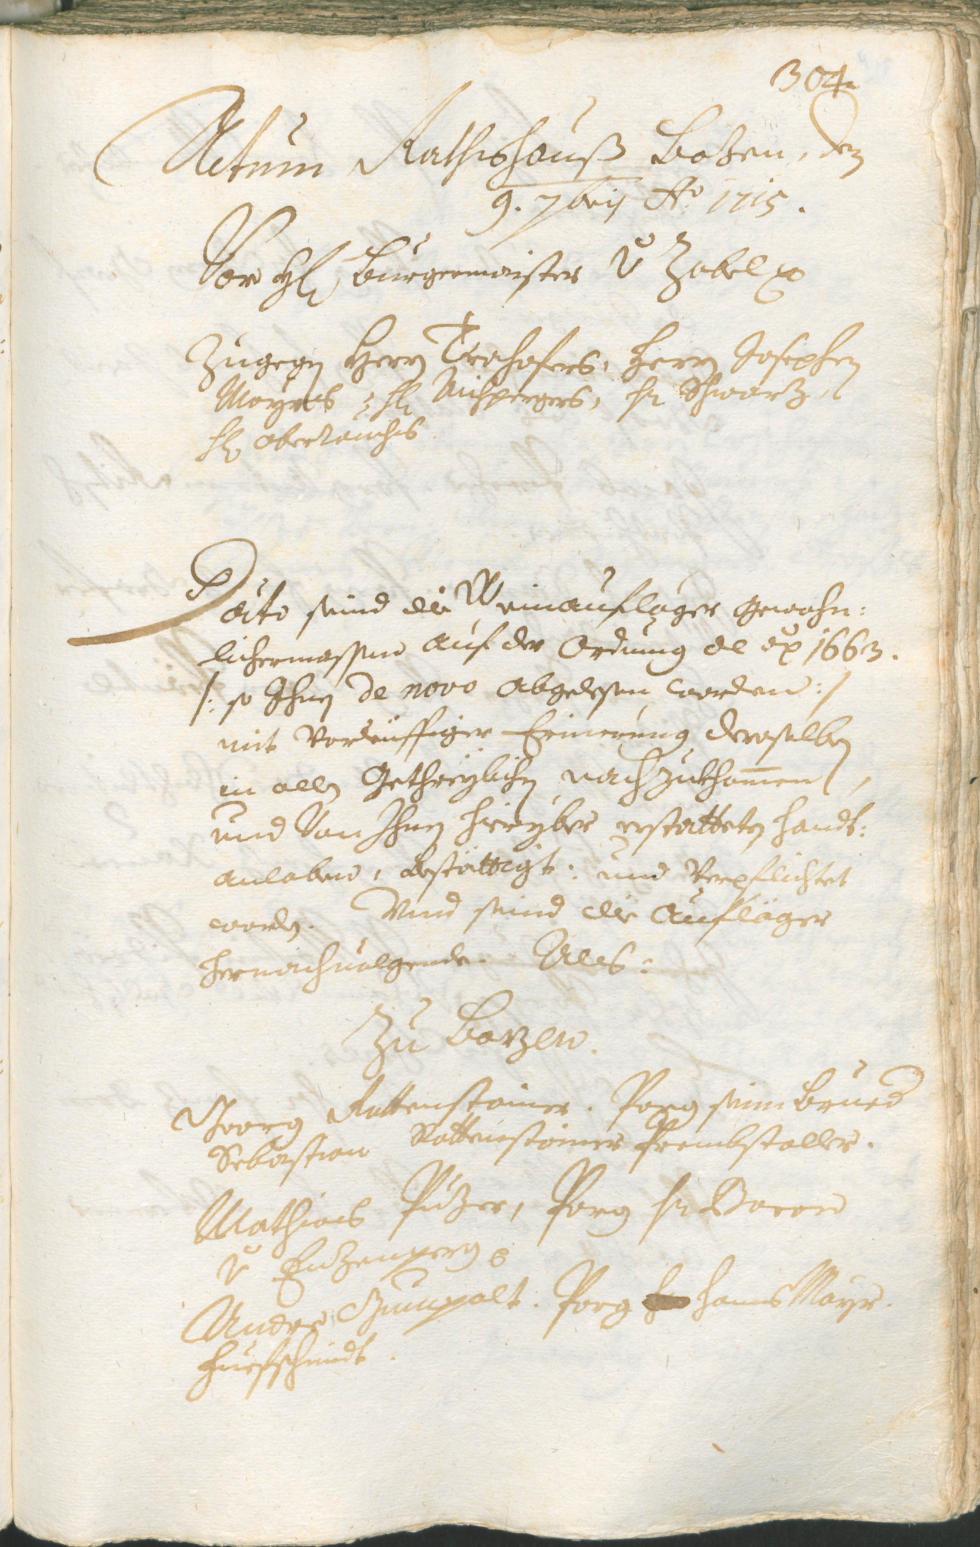 304
Actum Rathshauß Bozen, den
9. 7bris Ao 1715.
Vor H: Burgermaister v Zobel
Zugegen Herrn Trohofers, Herrn Josephen
Mayrs, H: Aichpergers, H: Schwartz,
H: Oberrauchs
Dato seind die Weinaufleger gewohn:
lichermassen auf der Ordnung de Ao 1663.
/: so Ihnen de novo abgelesen worden :/
mit vorleiffiger Erinerung derselben
in allen getheylichen nachzukhomen,
und von Ihnen hieryber erstatteten handt:
anloben, bestättigt: und verpflichtet
worden. Vnd seind die Aufleger
hernachuolgende. Alls:
Zu Bozen.
Georg Rottensteiner. Porg sein Brued
Sebastian Rottensteiner Prembstaller.
Mathias Puzer, Porg H: Baron
v Enzenperg
Andre Gumpolt. Porg Hanns Mayr.
Huefschmidt.